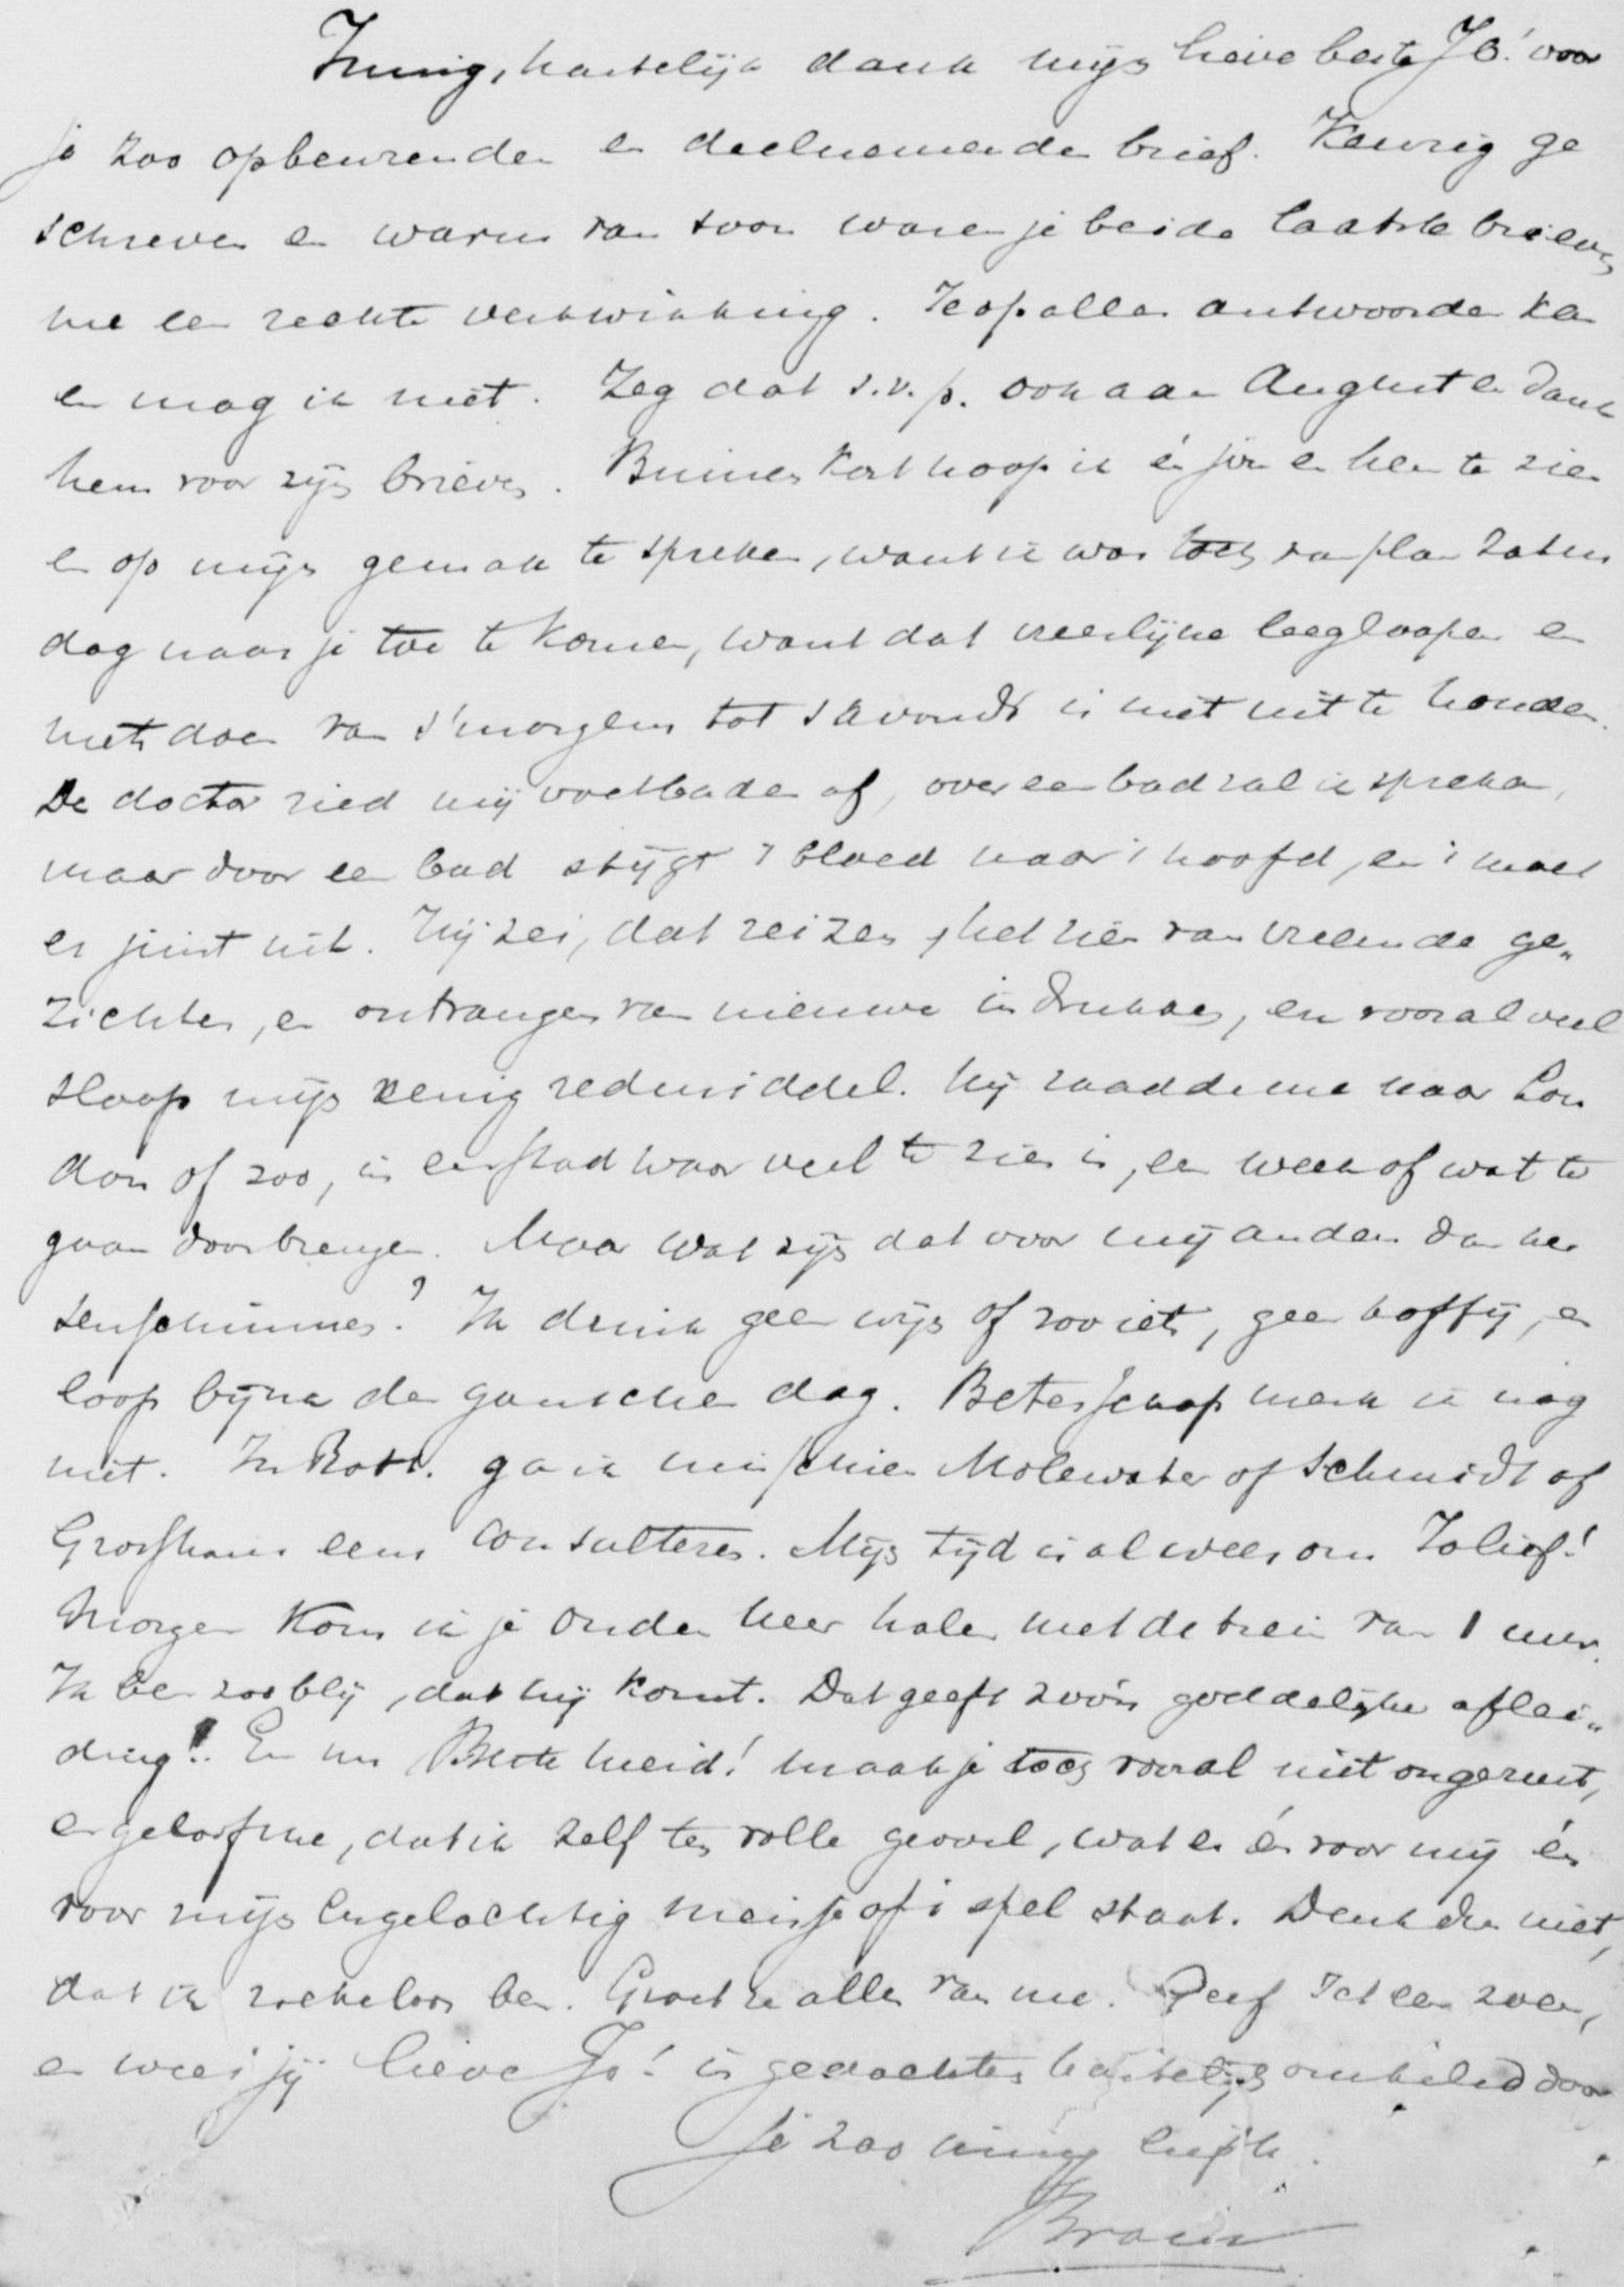 Innig, hartelijk dank mijn lieve beste Jo! voor
je zoo opbeurenden en deelnemenden brief. Keurig ge
schreven en warm van toon waren je beide laatste brieven
me een rechte verkwikking. Ze op allen antwoorden kan
en mag ik niet. Zeg dat s.v.p. ook aan August en dank
hem voor zijn brieven. Binnen kort hoop ik én jou en hem te zien
en op mijn gemak te spreken, want ik was toch van plan Zatur
dag naar je toe te komen, want dat vreeslijke leegloopen en
niets doen van s'morgens tot s'avonds is niet uit te houden.
De doctor ried mij voetbaden af, over een bad zal ik spreken,
maar door een bad stijgt 't bloed naar 't hoofd, en 't moet
er juist uit. Hij zei, dat reizen, het zien van vreemde ge„
zichten, en ontvangen van nieuwe indrukken, en vooral veel
slaap mijn eenig redmiddel. Hij raadde me naar Lon
don of zoo, in een stad waar veel te zien is, een week of wat te
gaan doorbrengen. Maar wat zijn dat voor mij anders dan her
senschimmen? Ik drink geen wijn of zoo iets, geen koffij, en
loop bijna den ganschen dag. Beterschap merk ik nog
niet. In Rott. ga ik misschien Molewater of Schmidt of
Groshans eens consulteren. Mijn tijd is al weer om Jo lief!
Morgen kom ik je ouden heer halen met de trein van 1 uur.
Ik ben zoo blij, dat hij komt. Dat geeft zoo'n goddelijke aflei„
ding!. En nu Beste meid! maak je toch vooral niet ongerust,
en geloof me, dat ik zelf ten volle gevoel, wat er én voor mij én
voor mijn engelachtig meisje op 't spel staat. Denk dus niet,
dat ik roekeloos ben. Groet ze allen van me. Geef een zoen,
en wees jij lieve Jo! in gedachten hartelijk omhelsd door
je zoo innig liefh.